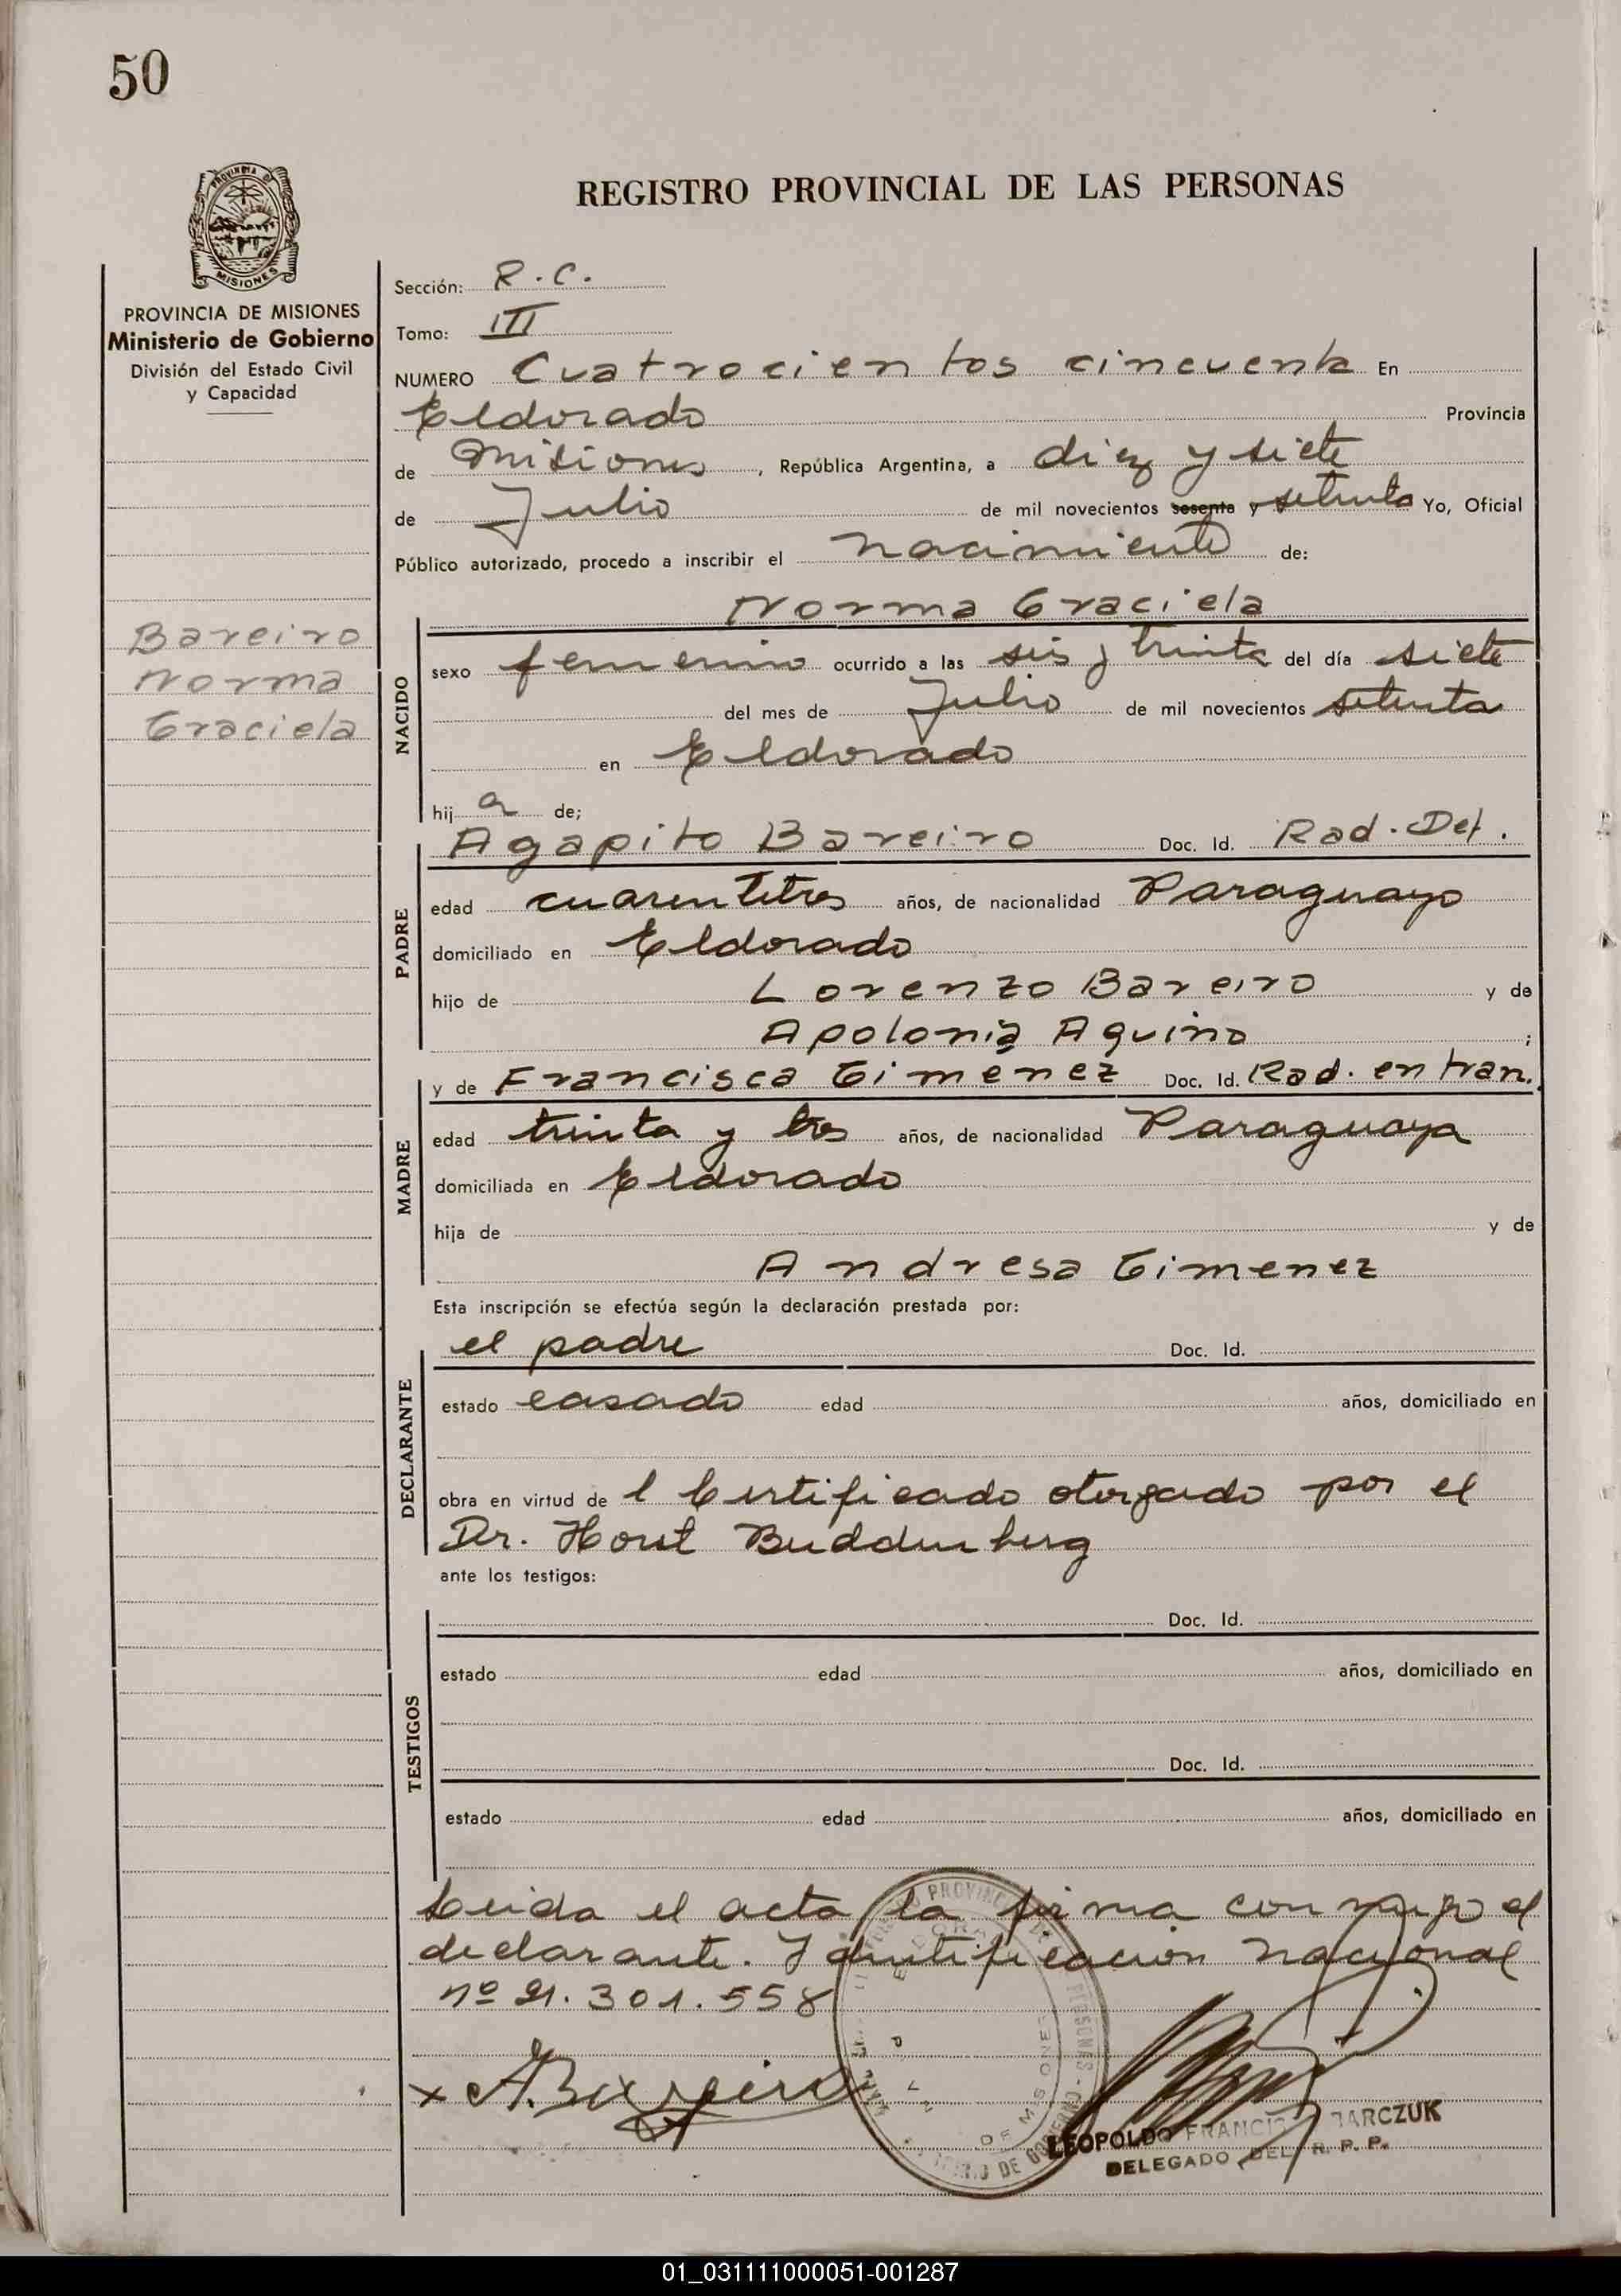 50
PROVINCIA DE MISIONES
REGISTRO PROVINCIAL DE LAS PERSONAS
PROVINCIA DE MISIONES
Ministerio de Gobierno
División del Estado Civil
y Capacidad
Bareiro
Norma
Graciela
Sección: R.C.
Tomo: III
NUMERO Cuatrocientos cincuenta En
Eldorado Provincia
de Misiones, República Argentina, a diez y siete
de Julio de mil novecientos sesenta y setenta Yo, Oficial
Público autorizado, procedo a inscribir el nacimiento de:
Norma Graciela
NACIDO
sexo femenino ocurrido a las seis y treinta del día siete
del mes de Julio de mil novecientos setenta
en Eldorado
hij a de;
Agapito Bareiro Doc. Id. Rad. Def.
PADRE
edad cuarentitres años, de nacionalidad Paraguayo
domiciliado en Eldorado
hijo de Lorenzo Bareiro y de
Apolonia Aquino ;
y de Francisca Gimenez Doc. Id. Rad. en tran.
MADRE
edad treinta y tres años, de nacionalidad Paraguaya
domiciliada en Eldorado
hija de y de
Andresa Gimenez
Esta inscripción se efectúa según la declaración prestada por:
el padre Doc. Id.
DECLARANTE
estado casado edad años, domiciliado en
obra en virtud de l Certificado otorgado por el
Dr. Horst Buddenberg
ante los testigos:
Doc. Id.
TESTIGOS
estado edad años, domiciliado en
Doc. Id.
estado edad años, domiciliado en
Leida el acta la firma conmigo el
declarante. Identificación nacional
nº 21.301.558
x A. Bareiro
LEOPOLDO FRANCIS
DELEGADO DEL R. P. P.
01_031111000051-001287